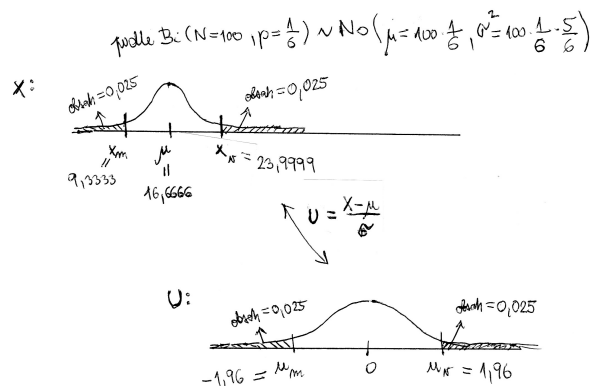 podle Bi(N=100, p=1/6) ~ No(μ=100·1/6, σ²=100·1/6·5/6)
X:
obsah=0,025
obsah=0,025
x_m
μ
x_v = 23,9999
=
=
9,3333
16,6666
U = (X-μ)/σ
U:
obsah=0,025
obsah=0,025
-1,96 = u_m
0
u_v = 1,96